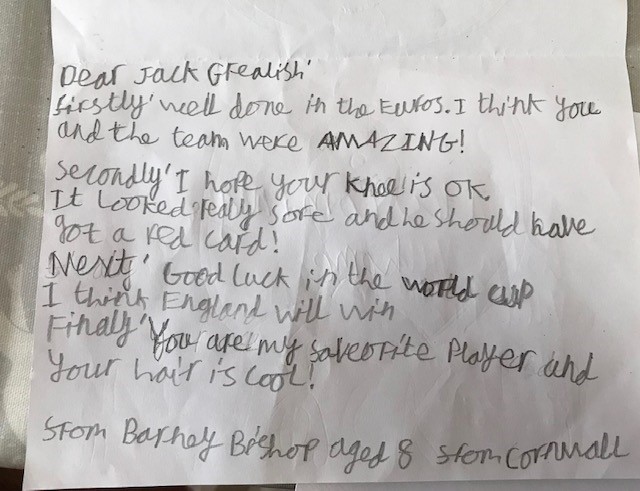 Dear Jack Grealish'
firstly' well done in the Euros. I think you
and the team were AMAZING!
Secondly' I hope your knee is OK.
It looked realy sore and he should have
got a red card!
Nexty' Good luck in the world cup
I think England will win
Finaly' You are my faveorite Player and
Your hair is cool!
from Barney Bishop aged 8 from Cornwall